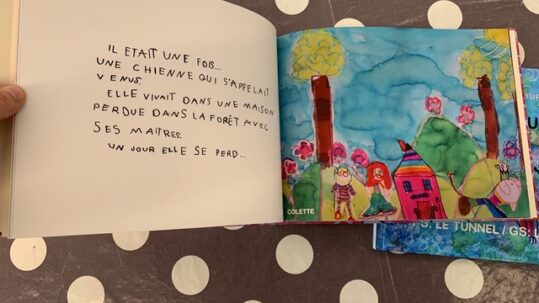 IL ETAIT UNE FOIS...
UNE CHIENNE QUI S'APPELAIT
VENUS.
ELLE VIVAIT DANS UNE MAISON
PERDUE DANS LA FORÊT AVEC
SES MAITRES.
UN JOUR ELLE SE PERD...
COLETTE
S: LE TUNNEL / GS: L